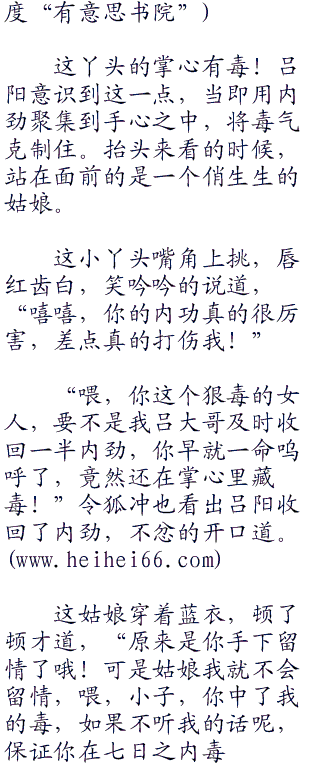 度“有意思书院”)
这丫头的掌心有毒！吕
阳意识到这一点，当即用内
劲聚集到手心之中，将毒气
克制住。抬头来看的时候，
站在面前的是一个俏生生的
姑娘。
这小丫头嘴角上挑，唇
红齿白，笑吟吟的说道，
“嘻嘻，你的内功真的很厉
害，差点真的打伤我！”
“喂，你这个狠毒的女
人，要不是我吕大哥及时收
回一半内劲，你早就一命呜
呼了，竟然还在掌心里藏
毒！”令狐冲也看出吕阳收
回了内劲，不忿的开口道。
(www.heihei66.com)
这姑娘穿着蓝衣，顿了
顿才道，“原来是你手下留
情了哦！可是姑娘我就不会
留情，喂，小子，你中了我
的毒，如果不听我的话呢，
保证你在七日之内毒